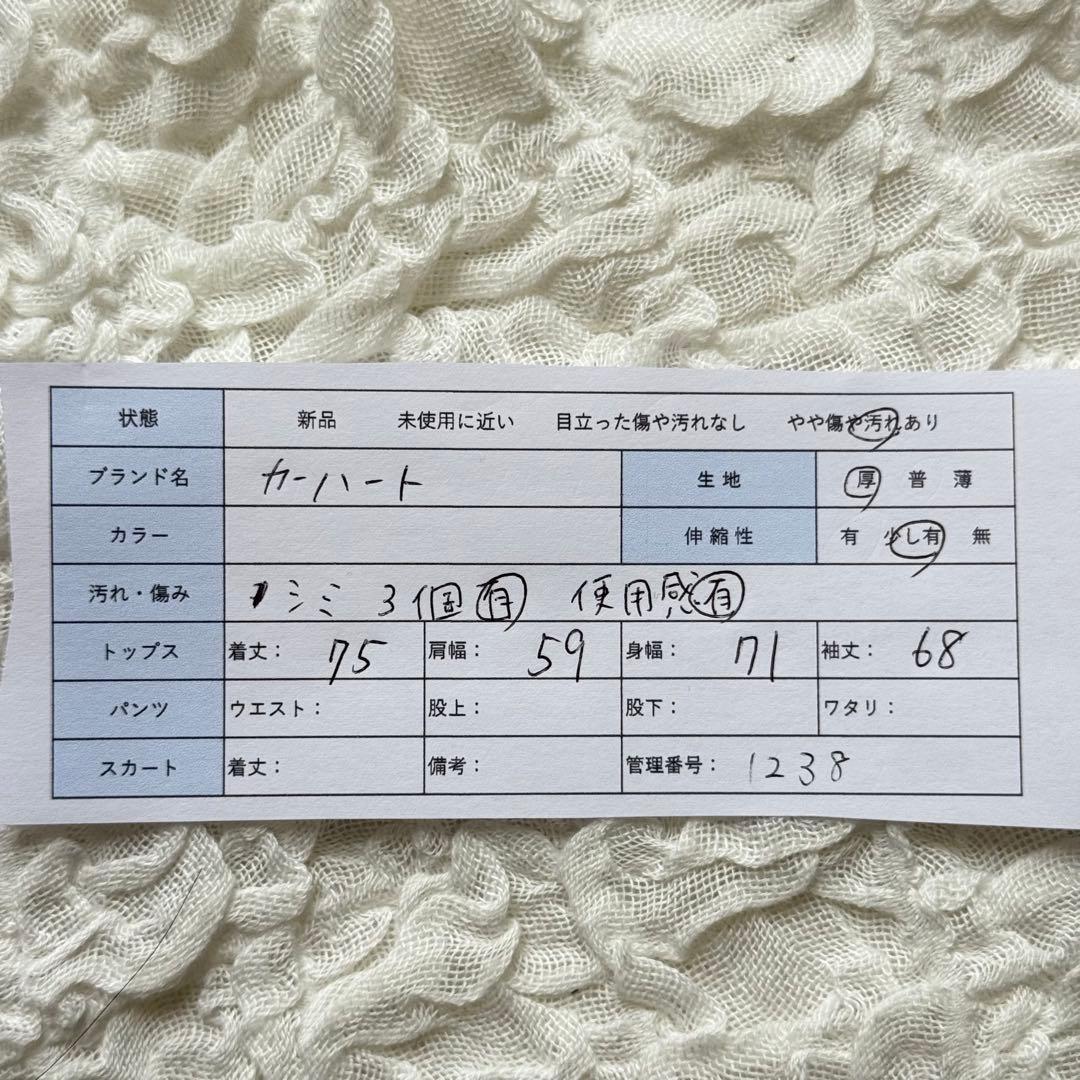 状態 新品 未使用に近い 目立った傷や汚れなし やや傷や汚れあり
ブランド名 カーハート 生地 厚 普 薄
カラー 伸縮性 有 少し有 無
汚れ・傷み シミ 3個有 使用感有
トップス 着丈： 75 肩幅： 59 身幅： 71 袖丈： 68
パンツ ウエスト： 股上： 股下： ワタリ：
スカート 着丈： 備考： 管理番号： 1238